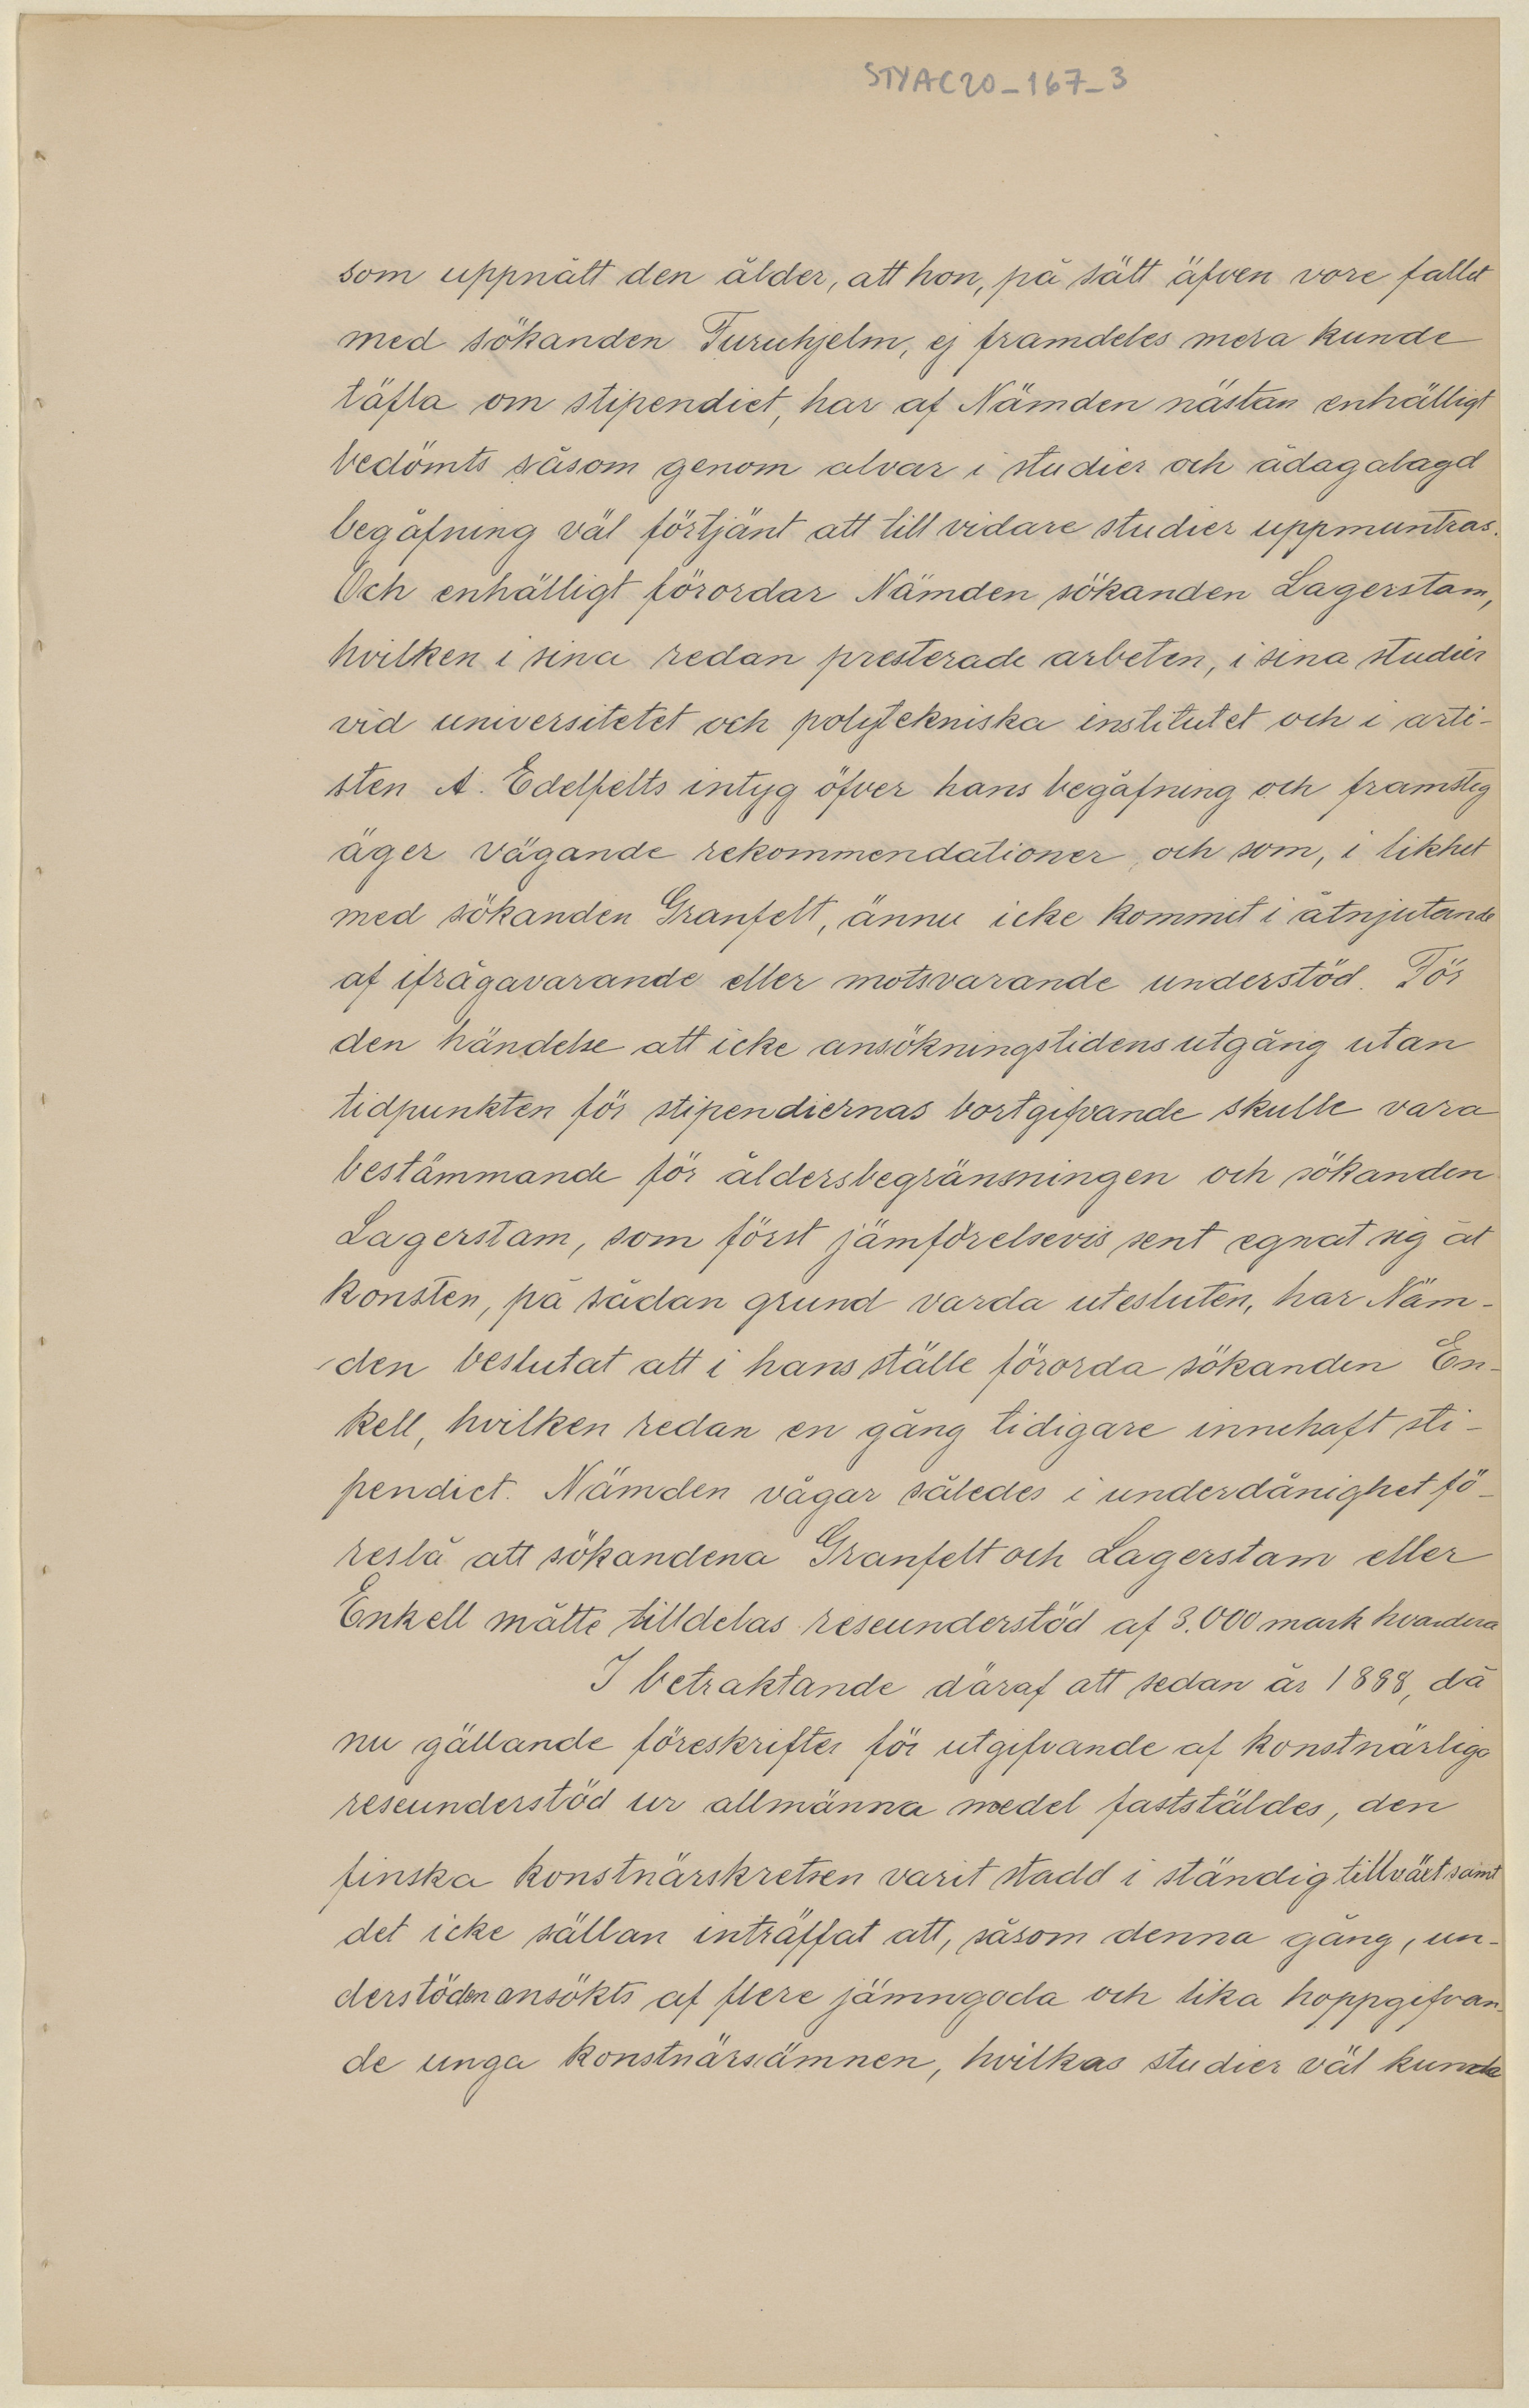 STYAC20_167_3
som uppnått den ålder, att hon, på sätt äfven vore fallet
med sökanden Furuhjelm, ej framdeles mera kunde
täfla om stipendiet, har af Nämden nästan enhälligt
bedömts såsom genom alvar i studier och ådagalagd
begåfning väl förtjänt att till vidare studier uppmuntras.
Och enhälligt förordar Nämden sökanden Lagerstam,
hvilken i sina redan presterade arbeten, i sina studier
vid universitetet och polytekniska institutet och i arti-
sten A. Edelfelts intyg öfver hans begåfning och framsteg
äger vägande rekommendationer, och som, i likhet
med sökanden Granfelt, ännu icke kommit i åtnjutande
af ifrågavarande eller motsvarande understöd. För
den händelse att icke ansökningstidens utgång utan
tidpunkten för stipendiernas bortgifvande skulle vara
bestämmande för åldersbegränsningen och sökanden
Lagerstam, som först jämförelsevis sent egnat sig åt
konsten, på sådan grund varda utesluten, har Näm-
den beslutat att i hans ställe förorda sökanden En-
kell, hvilken redan en gång tidigare innehaft sti-
pendiet. Nämden vågar således i underdånighet fö-
reslå att sökandena Granfelt och Lagerstam eller
Enkell måtte tilldelas reseunderstöd af 3.000 mark hvardera
I betraktande däraf att sedan år 1888, då
nu gällande föreskrifter för utgifvande af konstnärliga
reseunderstöd ur allmänna medel faststäldes, den
finska konstnärskretsen varit stadd i ständig tillväxt samt
det icke sällan inträffat att, såsom denna gång, un-
derstöden ansökts af flere jämngoda och lika hoppgifvan-
de unga konstnärsämnen, hvilkas studier väl kunde